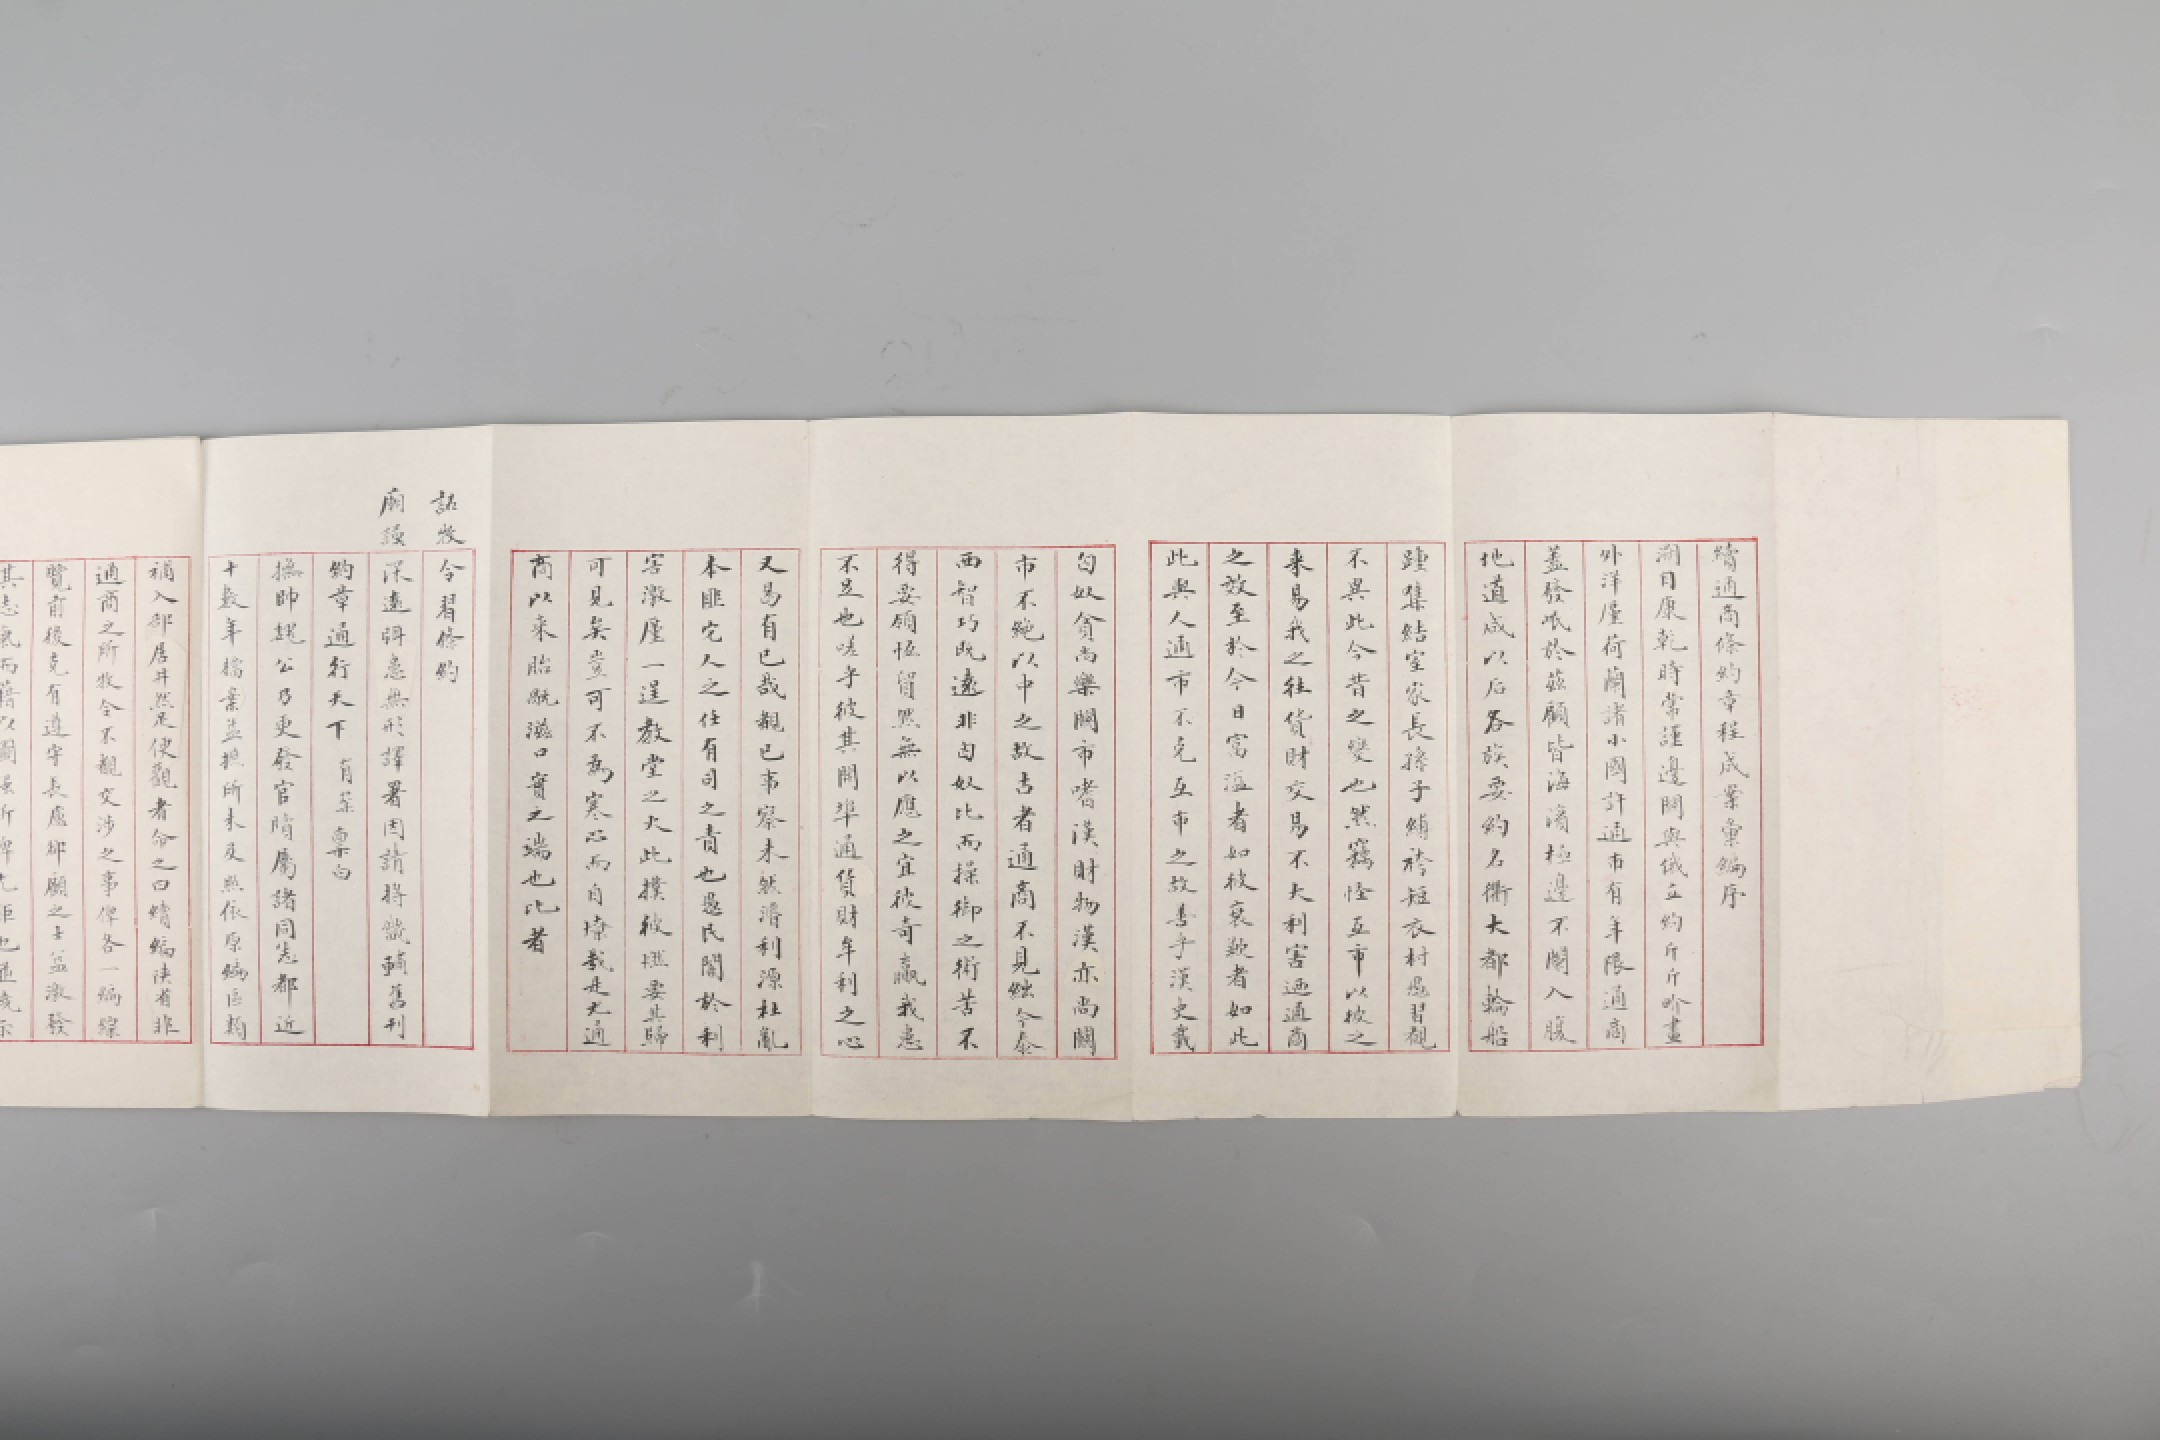 續通商條約章程成案彙編序
溯自康乾時常謹邊關與俄立約斤斤畛畫
外洋廑荷蘭諸小國許通市有年限通商
蓋發汦於茲顧皆海濱極邊不闌入腹
地道咸以后各族要約名衢大都輪船
踵集結室家長孫子絝袴短衣村愚習覩
不異此今昔之變也然竊怪互市以彼之
来易我之往貨財交易不大利害迺通商
之效至於今日富溢者如彼衰歎者如此
此與人通市不克互市之故善乎漢史載
匈奴貪尚樂關市嗜漢財物漢亦尚關
市不絶以中之故古者通商不見絀今泰
西智巧既遠非匈奴比而操御之術苦不
得要領恆貿然無以應之宜彼奇贏我患
不足也嗟乎彼其開埠通貨財牟利之心
又曷有已哉覩已事察未然濬利源杜亂
本匪宅人之任有司之責也愚民闇於利
害激廑一逞教堂之火此撲彼燃要其歸
可見矣豈可不為寒心而自壞哉是尤通
商以來胎亂滋口實之端也比者
詔牧令習條約
廟謨深遠弭患無形譯署因請將畿輔舊刊
約章通行天下 肯葉稟白
撫帥 公乃更發官隋屬諸同志都近
十數年檔案益摭所未及照依原編區類
補入部居井然足使觀者命之曰續編陝省非
通商之所牧令不覩交涉之事俾各一編綜
覽前後克有遵守長慮卻顧之士益激發
其志氣而藉以圖強